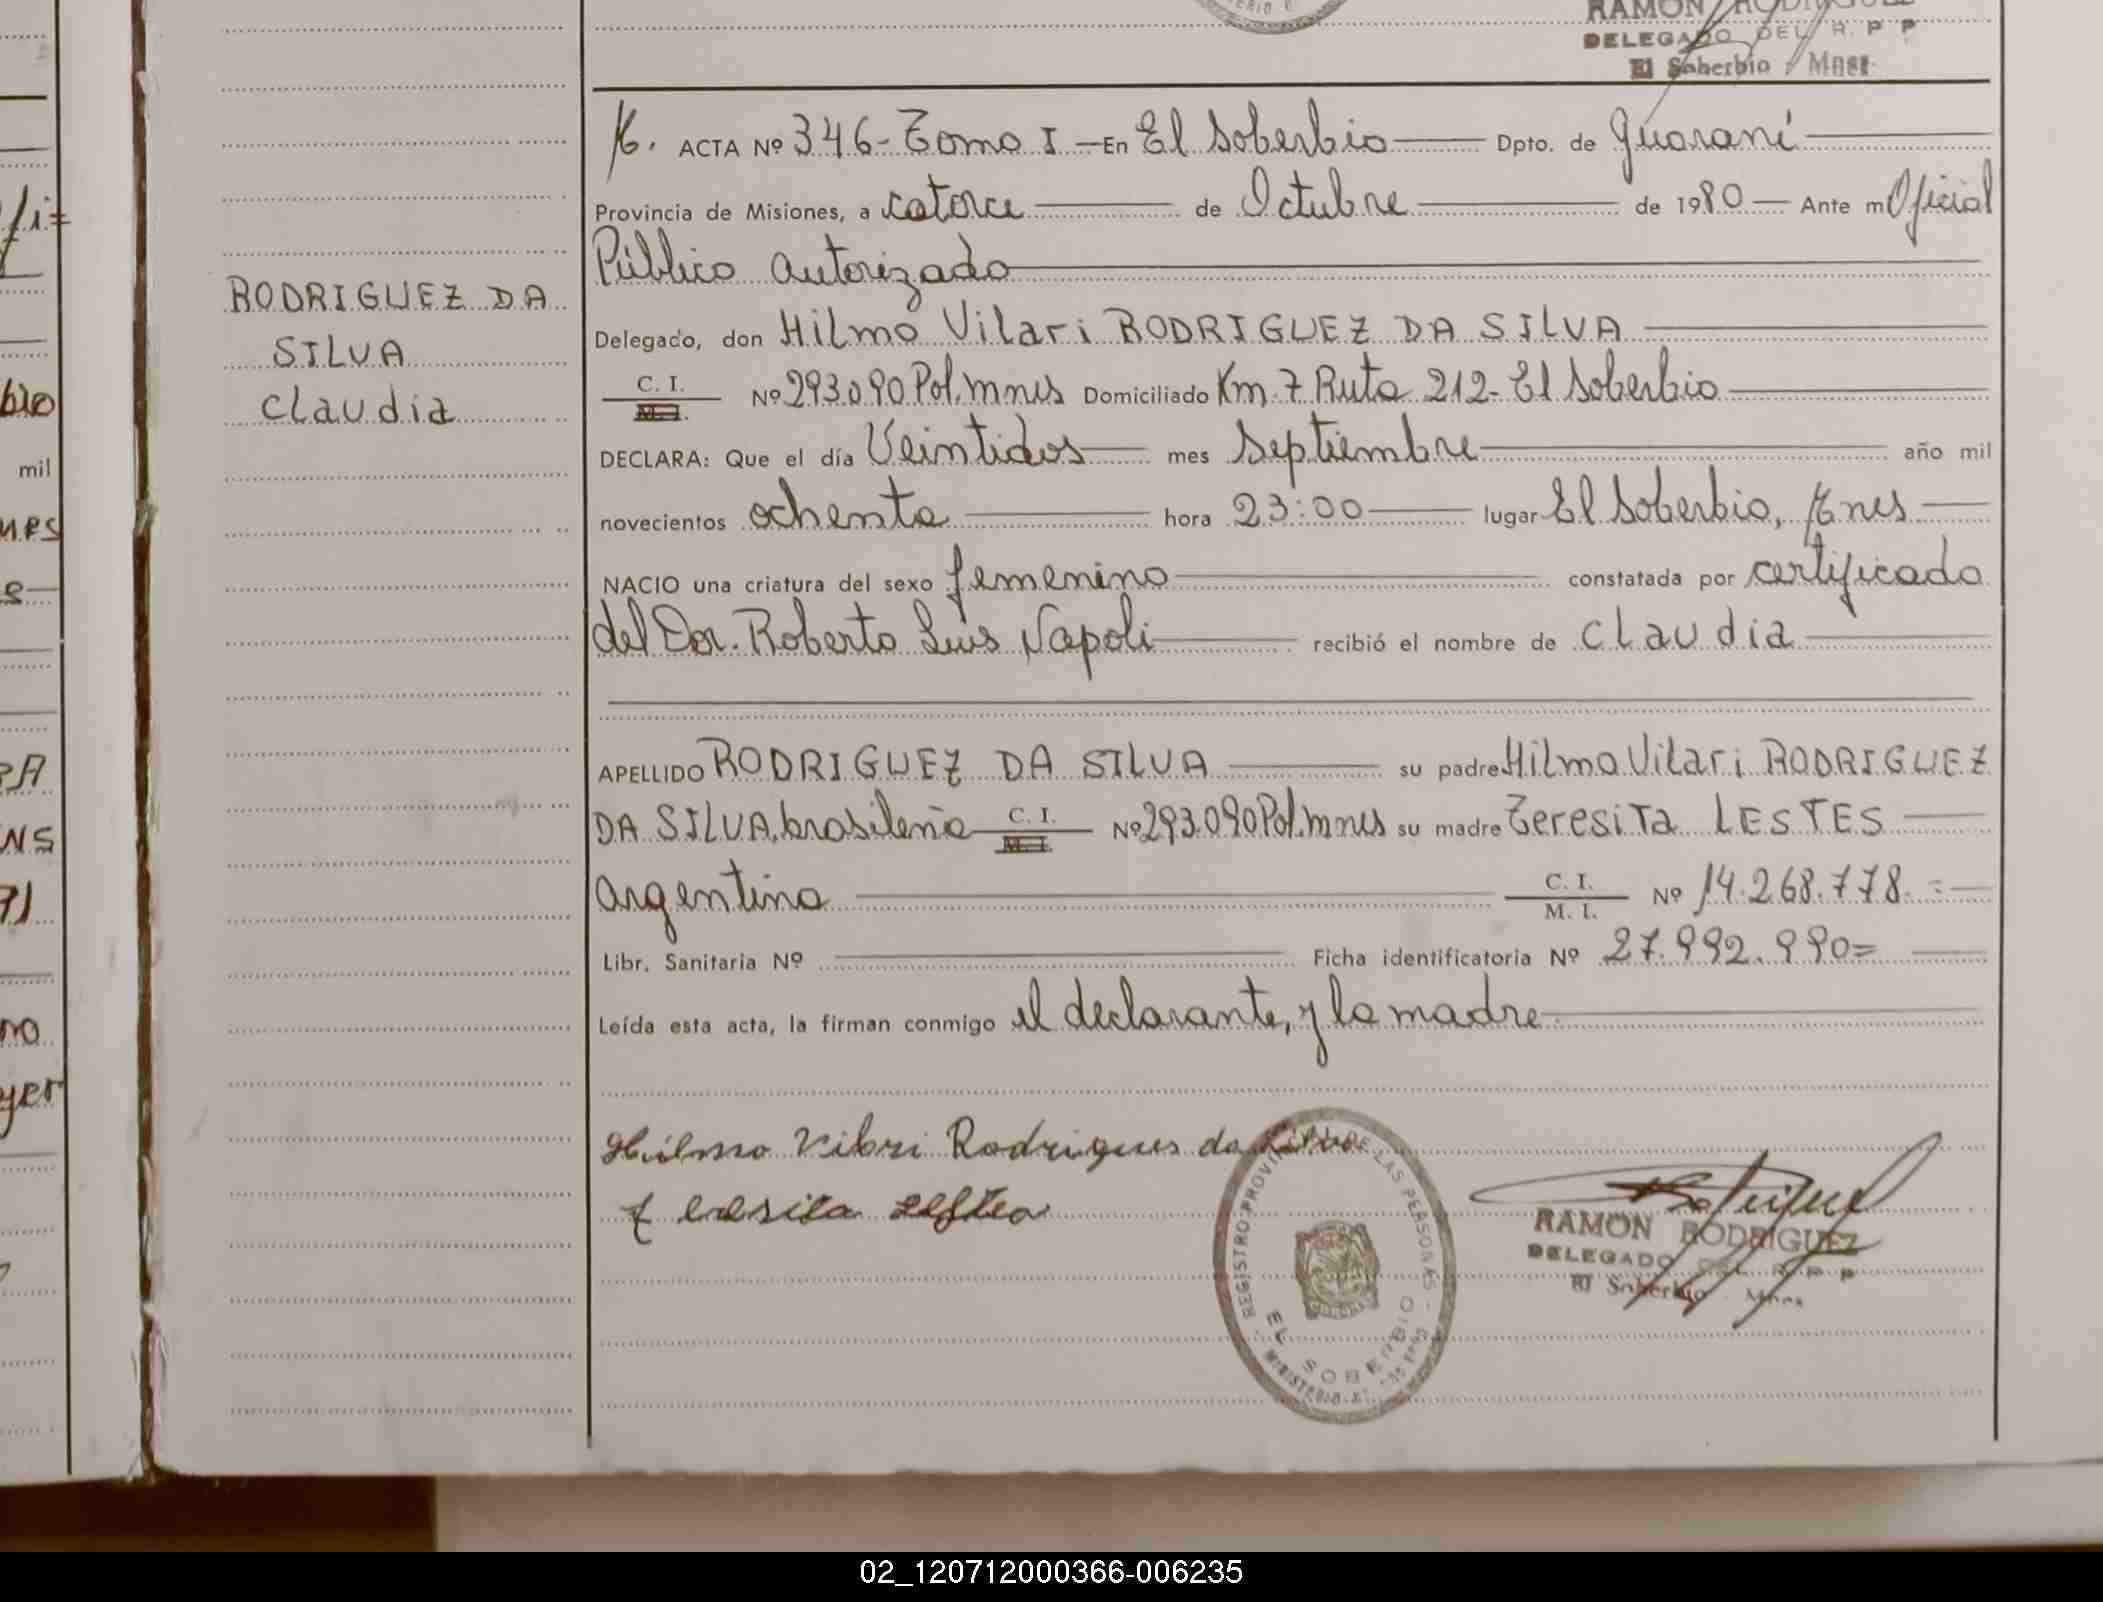 RAMON RODRIGUEZ
DELEGADO DEL R. P P
El Soberbio - Mnes
ACTA Nº 346 - Tomo I - En El Soberbio Dpto. de Guaraní
Provincia de Misiones, a catorce de Octubre de 1980 Ante m Oficial
Público autorizado
Delegado, don Hilmo Vilari RODRIGUEZ DA SILVA
C. I. Nº 293.090 Pol. Mnes Domiciliado Km. 7 Ruta 212 - El Soberbio
M. I.
DECLARA: Que el día Veintidos mes Septiembre año mil
novecientos ochenta hora 23:00 lugar El Soberbio, Mnes
NACIO una criatura del sexo femenino constatada por certificado
del Dor. Roberto Luis Napoli recibió el nombre de Claudia
APELLIDO RODRIGUEZ DA SILVA su padre Hilmo Vilari RODRIGUEZ
DA SILVA, brasileña C. I. Nº 293.090 Pol. Mnes su madre Teresita LESTES
M. I.
argentina C. I. Nº 14.268.778.=
M. I.
Libr. Sanitaria Nº Ficha identificatoria Nº 27.992.990=
Leída esta acta, la firman conmigo el declarante, y la madre
RODRIGUEZ DA
SILVA
Claudia
Hilmo Vilari Rodrigues da Silva
Teresita
REGISTRO PROVINCIAL DE LAS PERSONAS
EL SOBERBIO
RAMON RODRIGUEZ
DELEGADO DEL R. P P
El Soberbio - Mnes
bio
mil
nes
RA
NS
71
no
yer
02_120712000366-006235